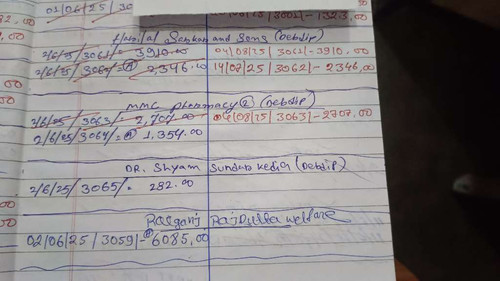 02/06/25/30
/3001/-1323.00
Sankar and Sons (Debdip)
2/6/25/3061/= 3910.00 04/08/25/3061/-3910.00
2/6/25/3062/= 2,346.00 14/08/25/3062/-2346.00
MMC pharmacy (Debdip)
2/6/25/3063/= 2,707.00 04/08/25/3063/-2707.00
2/6/25/3064/= 1,354.00
DR. Shyam Sundar Kedia (Debdip)
2/6/25/3065/= 282.00
Raiganj welfare
02/06/25/3059/- 6085.00